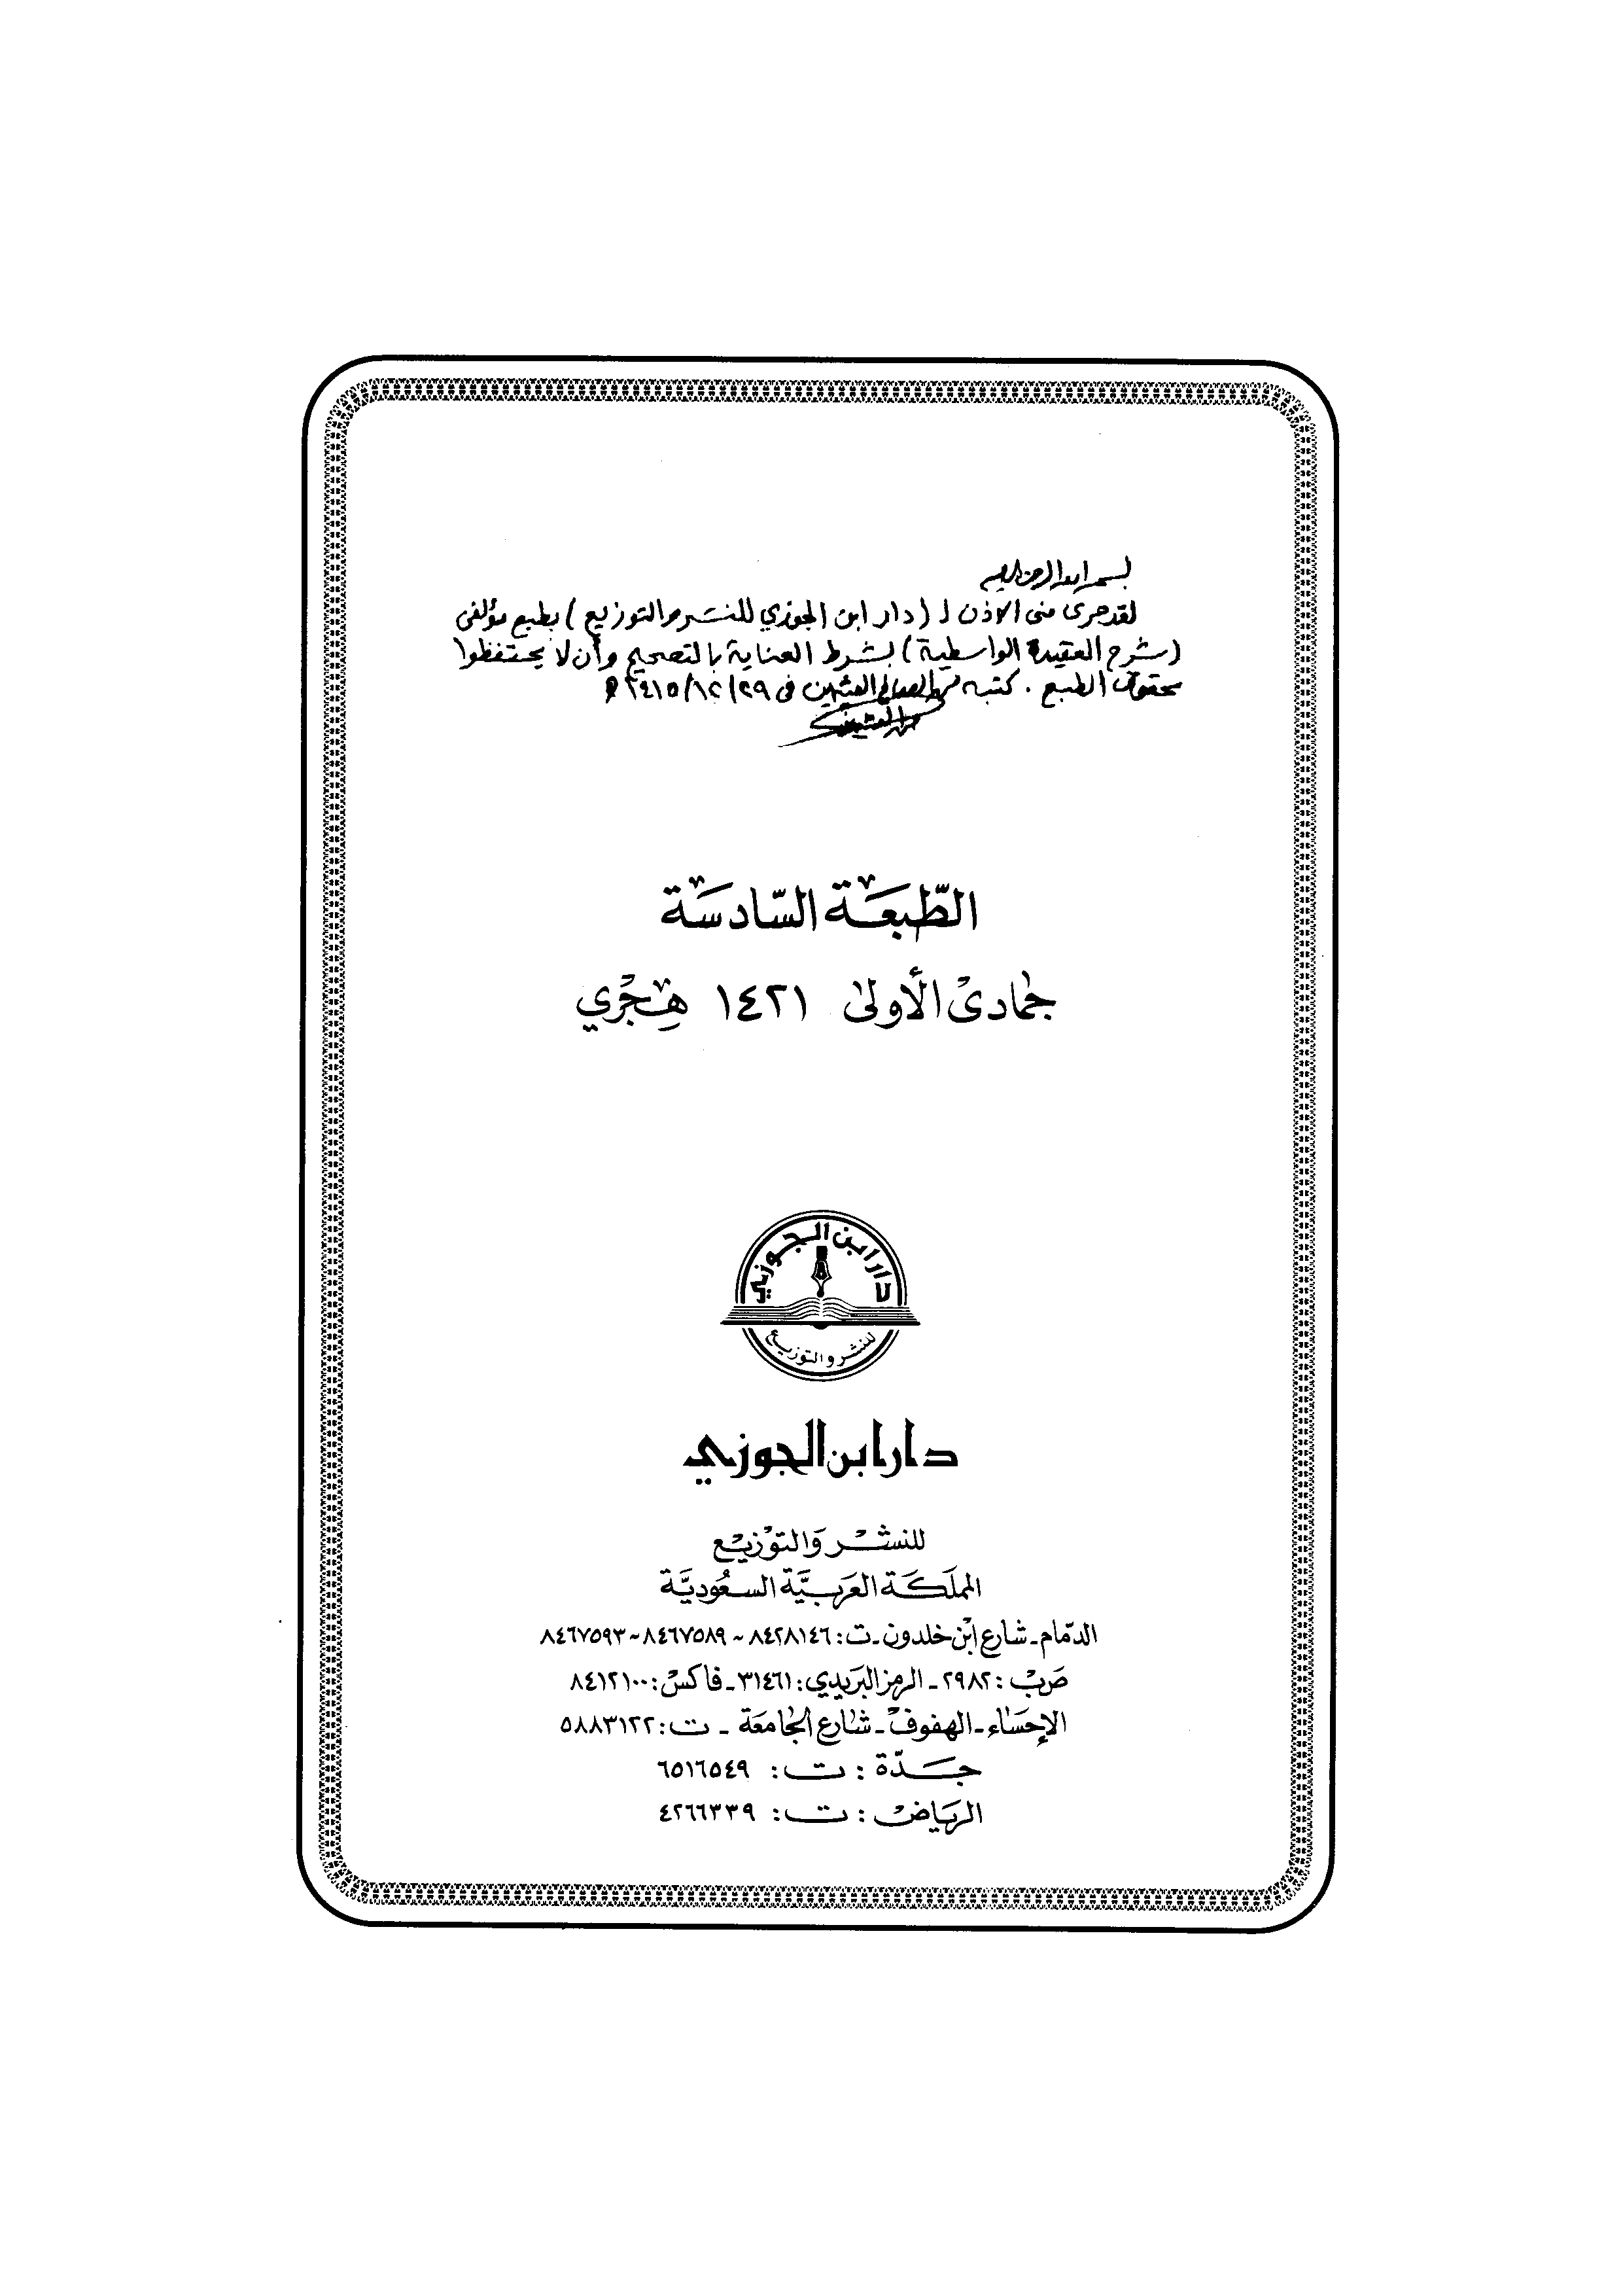 بسم الله الرحمن الرحيم
لقد جرى منى الاذن لـ (دار ابن الجوزي للنشر والتوزيع) بطبع مؤلفى
(شرح العقيدة الواسطية) بشرط العناية بالتصحيح وأن لا يحتفظوا
بحقوق الطبع . كتبه محمد الصالح العثيمين فى ٢٩/١٢/١٤١٥ هـ
الطّبعَة السّادسَة
جمادى الأولى ١٤٢١ هِجْري
دار ابن الجوزي
للنشر والتوزيع
دار ابن الجوزي
للنشر وَالتوْزيع
المملَكَة العَرَبيَّة السعُوديَّة
الدمّام ـ شارع ابْن خلدون ـ ت: ٨٤٢٨١٤٦ ~ ٨٤٦٧٥٨٩ ~ ٨٤٦٧٥٩٣
صَ بْ: ٢٩٨٢ ـ الرمز البَريدي: ٣١٤٦١ ـ فاكسْ: ٨٤١٢١٠٠
الإحسَاء ـ الهفوفْ ـ شارع الجامعَة ـ ت: ٥٨٨٣١٢٢
جَدّة : ت : ٦٥١٦٥٤٩
الريَاضْ : ت : ٤٢٦٦٣٣٩